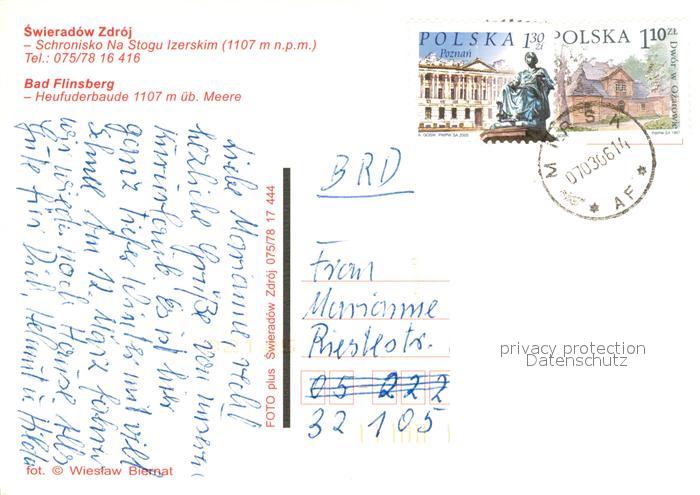 Świeradów Zdrój
– Schronisko Na Stogu Izerskim (1107 m n.p.m.)
Tel.: 075/78 16 416
Bad Flinsberg
– Heufuderbaude 1107 m üb. Meere
POLSKA 1,30 zł
Poznań
POLSKA 1,10 ZŁ
Dwór w Ożarowie
MIRSK
070306 14
AF
Liebe Marianne,
herzliche Grüße von unserem
Es ist hier
ganz tiefer Winter mit viel
Schnee. Am 12. März fahren
wir wieder nach Hause. Alles
Gute für Dich, Helmut u. Hilda
FOTO plus Świeradów Zdrój 075/78 17 444
BRD
Frau
Marianne
Riestestr.
05 222
32 105
privacy protection
Datenschutz
fot. © Wiesław Biernat